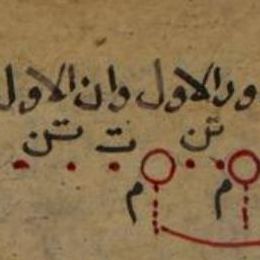 ور الاول وان الاول
تن ت تن
م م